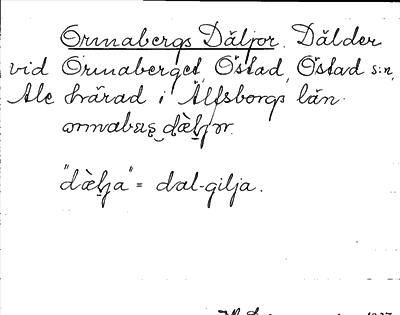 Ormabergs Däljor. Dälder
vid Ormaberget, Östad, Östad s:n,
Ale härad i Älfsborgs län.
"dàl̥ja" = dal-gilja.